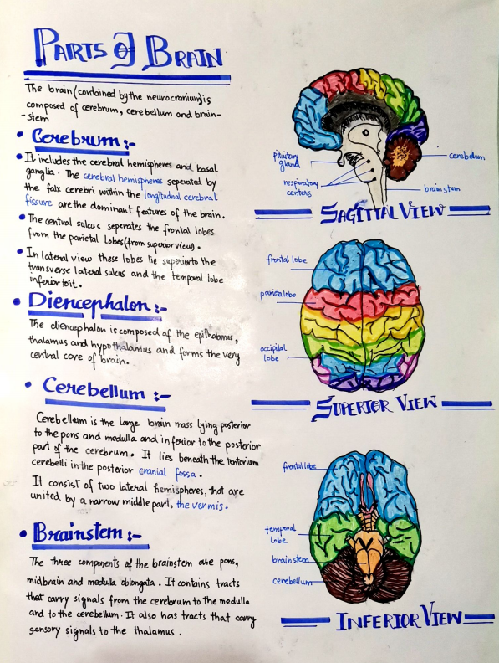 PARTS OF BRAIN
The brain (contained by the neurocranium) is
composed of cerebrum, cerebellum and brain-
-stem
• Cerebrum:-
• It includes the cerebral hemispheres and basal
ganglia. The cerebral hemispheres seperated by
the falx cerebri within the longitudinal cerebral
fissure are the dominant features of the brain.
• The central sulcus seperates the frontal lobes
from the parietal lobes (from superior view).
• In lateral view these lobes lie superior to the
transverse lateral sulcus and the temporal lobe
inferior to it.
• Diencephalon:-
The diencephalon is composed of the epithalamus,
thalamus and hypothalamus and forms the very
central core of brain.
• Cerebellum:-
Cerebellum is the large brain mass lying posterior
to the pons and medulla and inferior to the posterior
part of the cerebrum. It lies beneath the tentorium
cerebelli in the posterior cranial fossa.
It consist of two lateral hemispheres, that are
united by a narrow middle part, the vermis.
• Brainstem:-
The three components of the brainstem are pons,
midbrain and medulla oblongata. It contains tracts
that carry signals from the cerebrum to the medulla
and to the cerebellum. It also has tracts that carry
sensory signals to the thalamus.
pituitary
gland
respiratory
centers
cerebellum
brainstem
SAGITTAL VIEW
frontal lobe
parietal lobe
occipital
lobe
SUPERIOR VIEW
frontal lobe
temporal
lobe
brainstem
cerebellum
INFERIOR VIEW